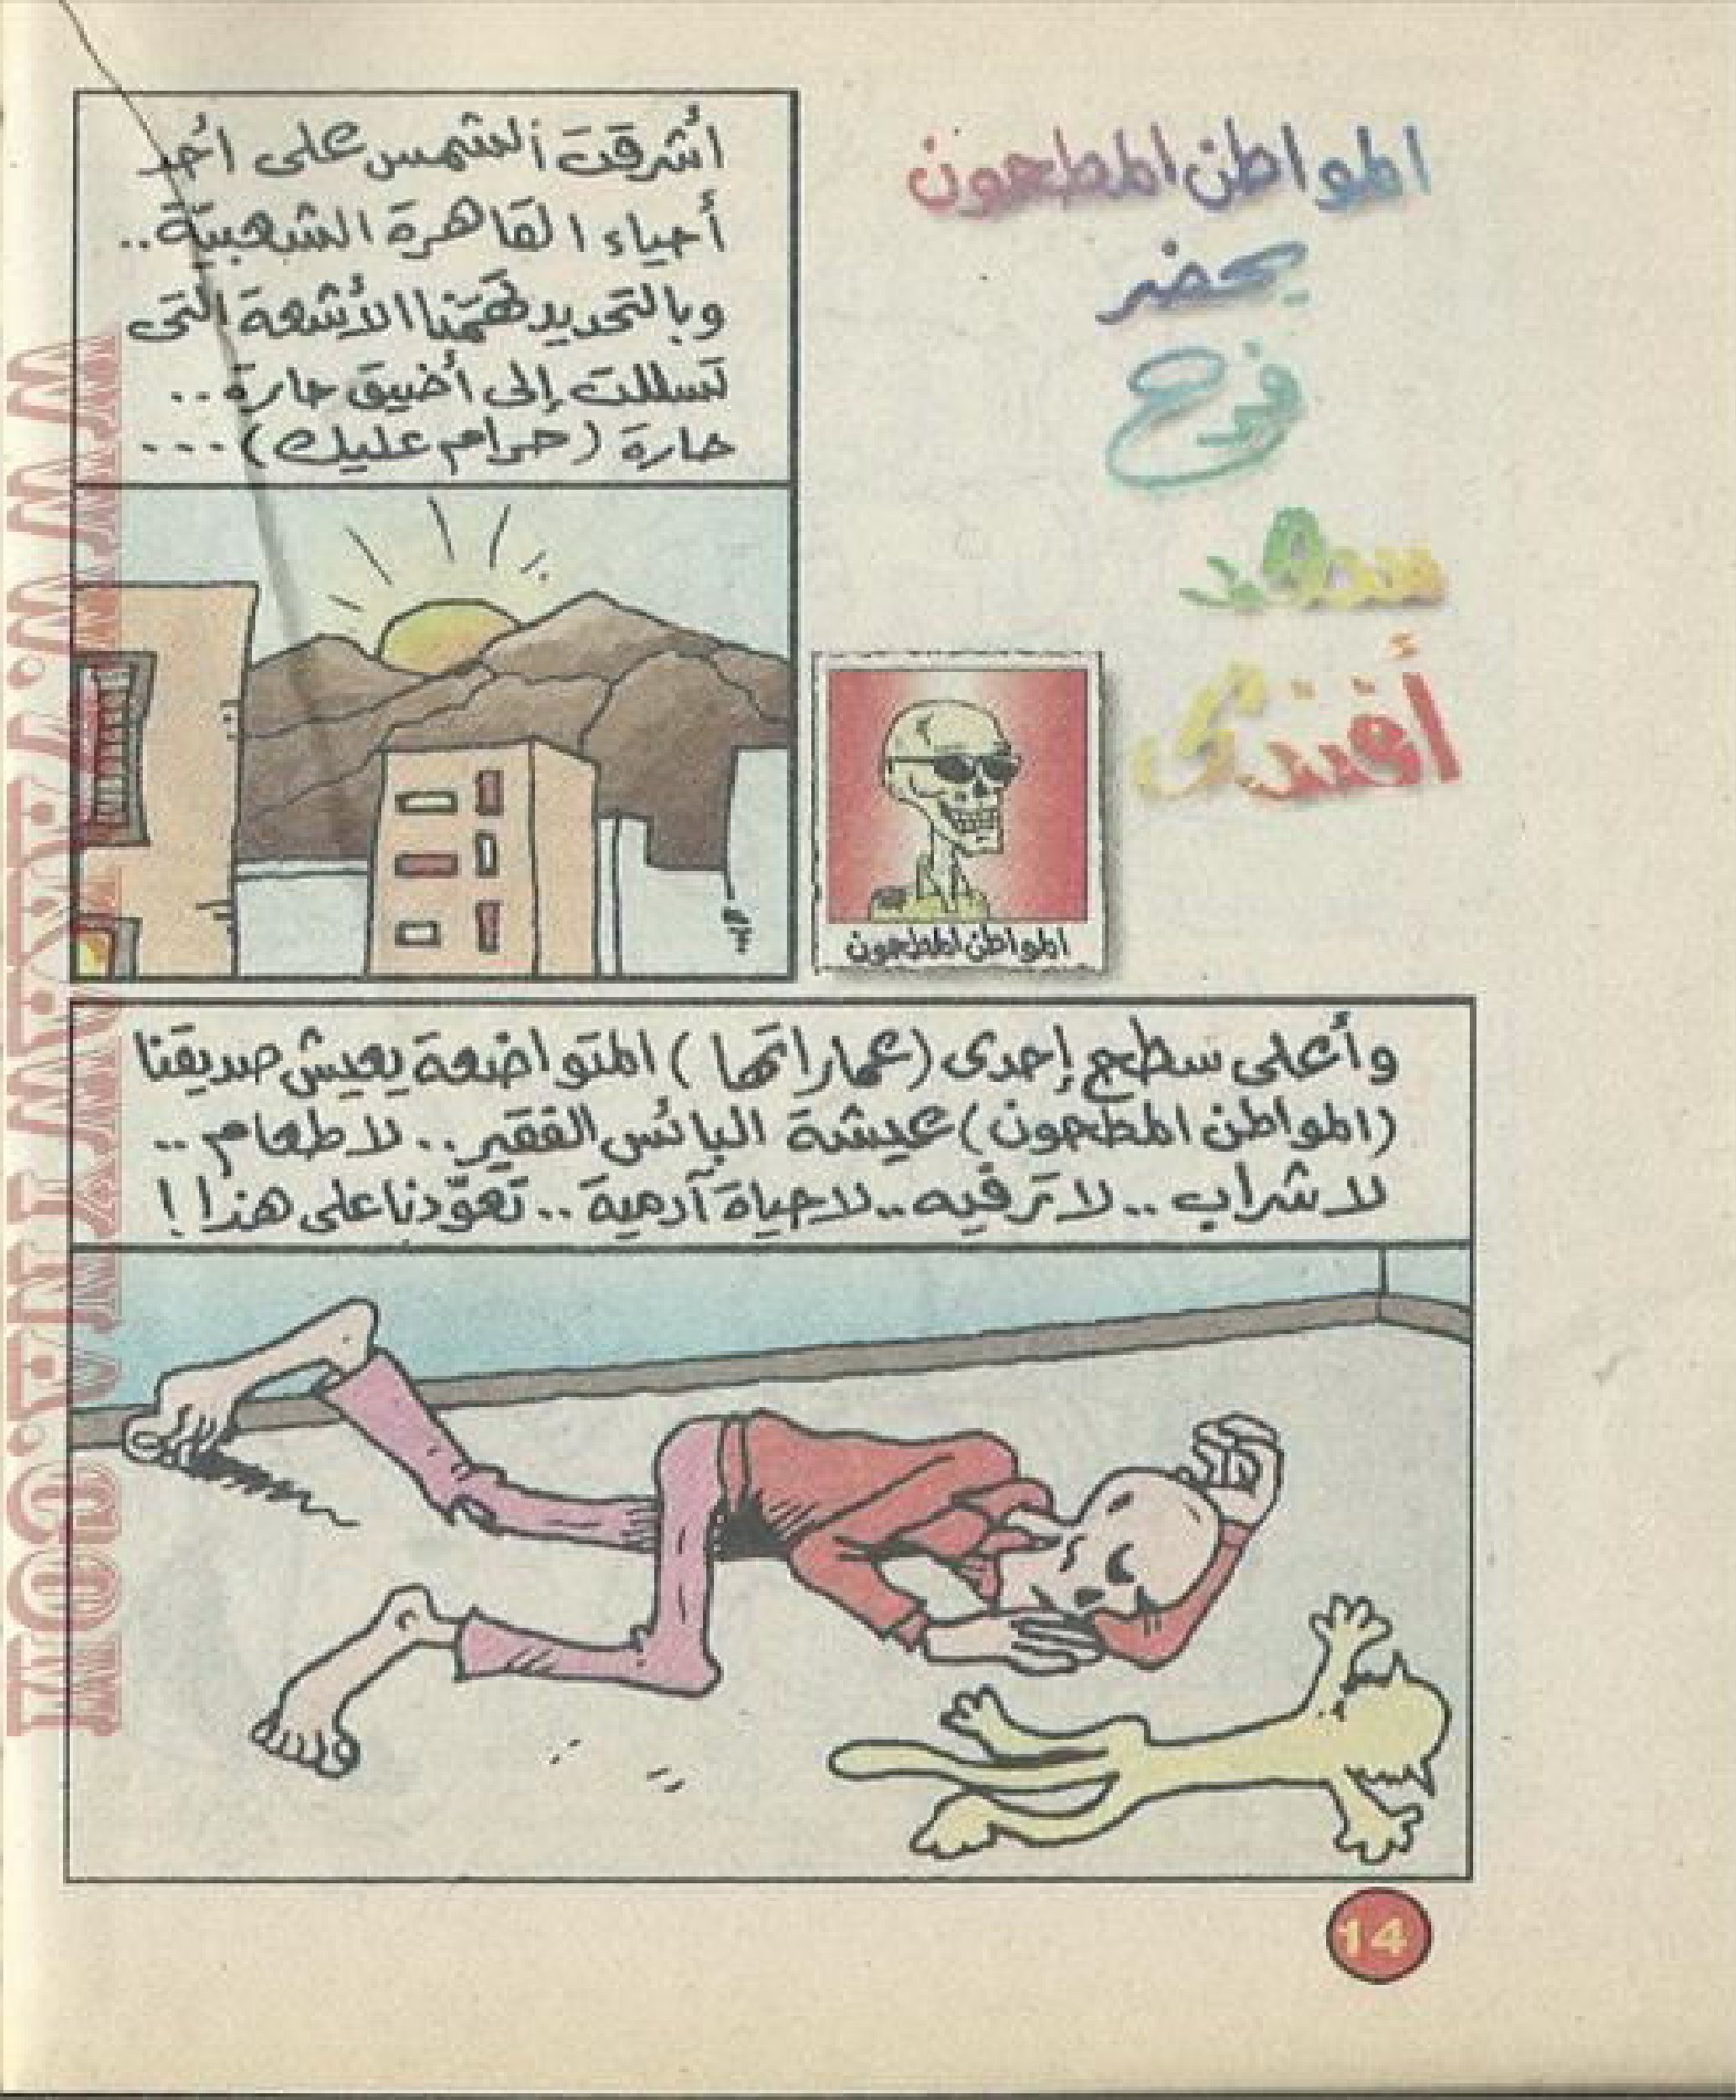 المواطن المطحون
يحضر
فرح
سعد
أفندى
أشرقت الشمس على أحد
أحياء القاهرة الشعبية..
وبالتحديد تهمنا الأشعة التى
تسللت إلى أضيق حارة..
حارة (حرام عليك)...
المواطن المطحون
وأعلى سطح إحدى (عماراتها) المتواضعة يعيش صديقنا
(المواطن المطحون) عيشة البائس الفقير.. لا طعام..
لا شراب.. لا ترفيه.. لا حياة آدمية.. تعوّدنا على هذا!
14